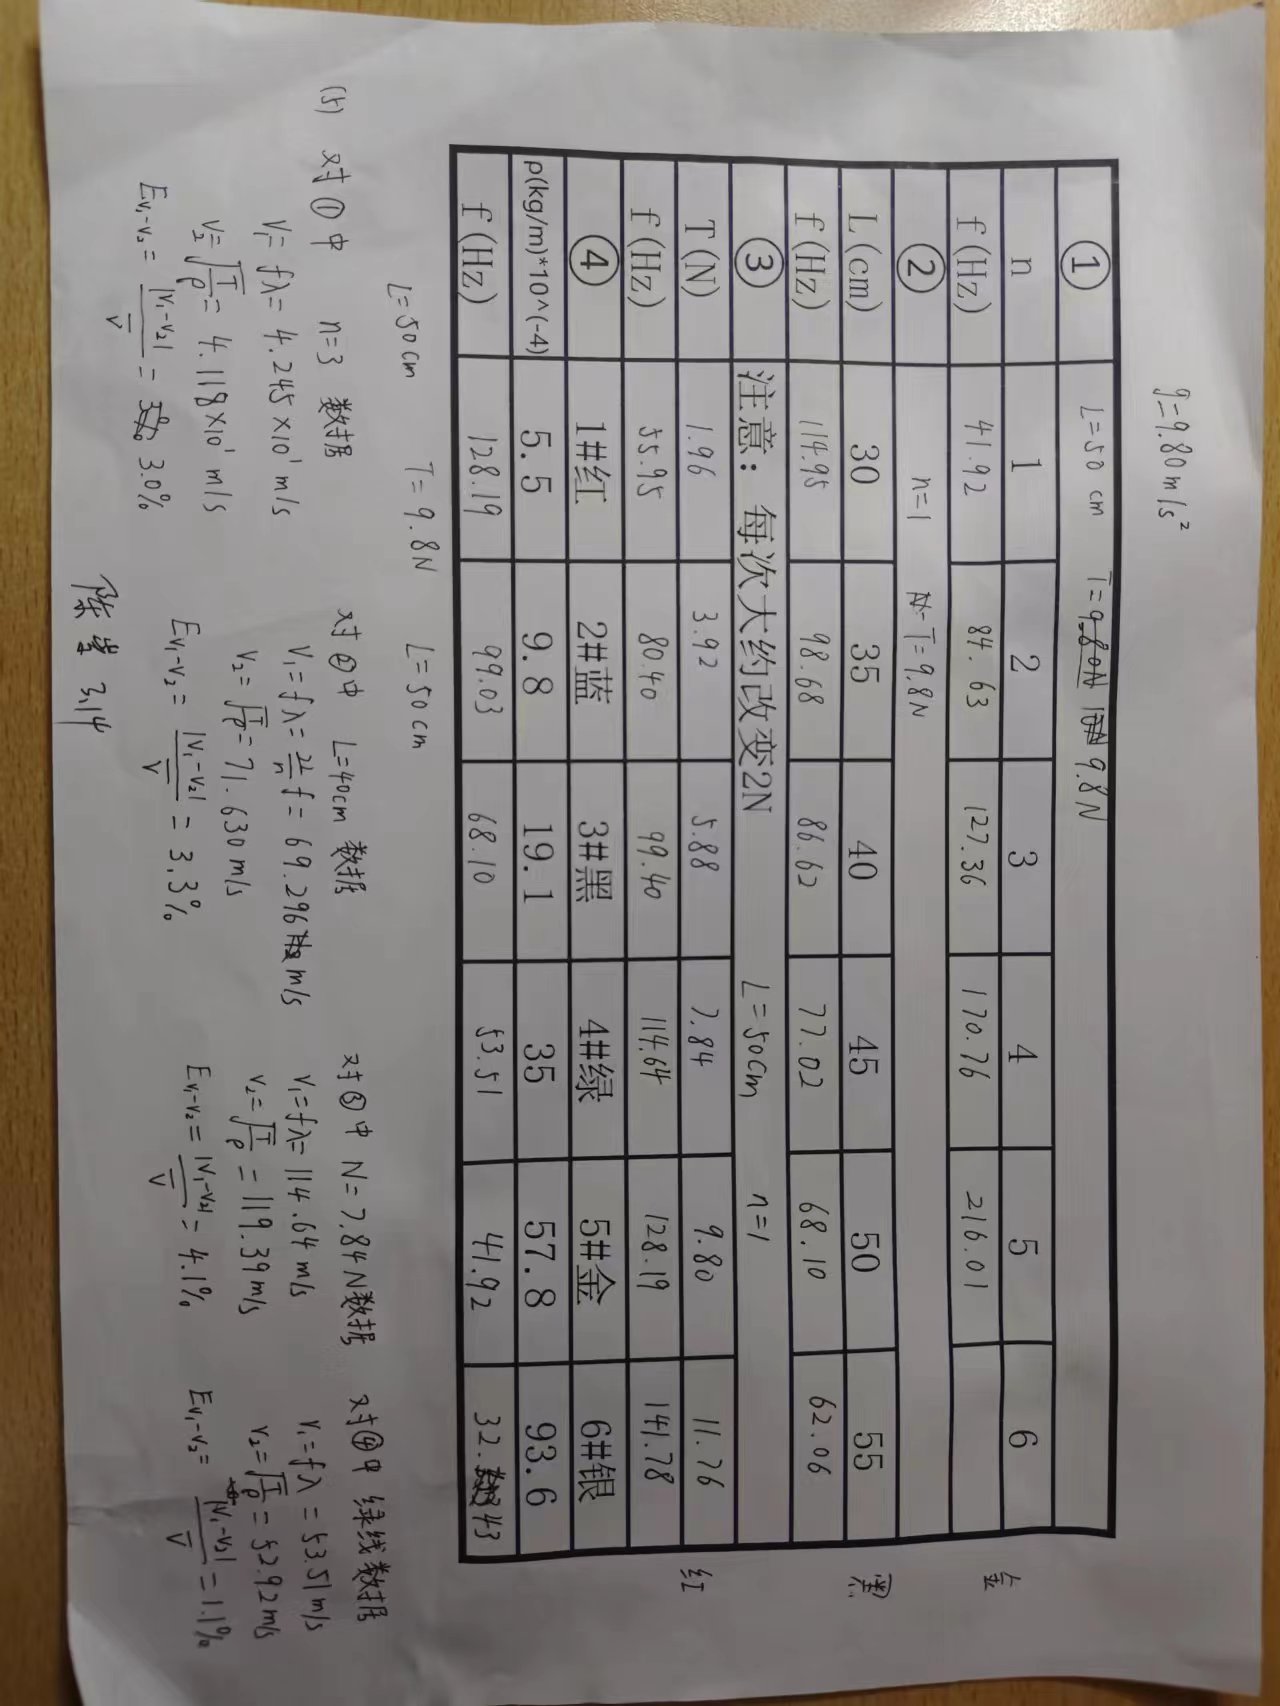 g=9.80m/s²
① L=50 cm T=9.8N
n 1 2 3 4 5 6
f(Hz) 41.92 84.63 127.36 170.76 216.01
金
② n=1 T=9.8N
L(cm) 30 35 40 45 50 55
f(Hz) 114.95 98.68 86.62 77.02 68.10 62.06
黑
③ 注意：每次大约改变2N L=50cm n=1
T(N) 1.96 3.92 5.88 7.84 9.80 11.76
f(Hz) 55.95 80.40 99.40 114.64 128.19 141.78
红
④ 1#红 2#蓝 3#黑 4#绿 5#金 6#银
ρ(kg/m)*10^(-4) 5.5 9.8 19.1 35 57.8 93.6
f(Hz) 128.19 99.03 68.10 53.51 41.92 32.43
L=50cm T=9.8N L=50cm
(5) 对①中 n=3 数据
V₁=fλ=4.245×10¹m/s
V₂=√(T/ρ)=4.118×10¹m/s
Ev₁-v₂=|V₁-V₂|/V̅=3.0%
对②中 L=40cm 数据
V₁=fλ=2L/n f=69.296m/s
V₂=√(T/ρ)=71.630m/s
Ev₁-v₂=|V₁-V₂|/V̅=3.3%
对③中 N=7.84N数据
V₁=fλ=114.64m/s
V₂=√(T/ρ)=119.39m/s
Ev₁-v₂=|V₁-V₂|/V̅=4.1%
对④中 绿线数据
V₁=fλ=53.51m/s
V₂=√(T/ρ)=52.92m/s
Ev₁-v₂=|V₁-V₂|/V̅=1.1%
3.14